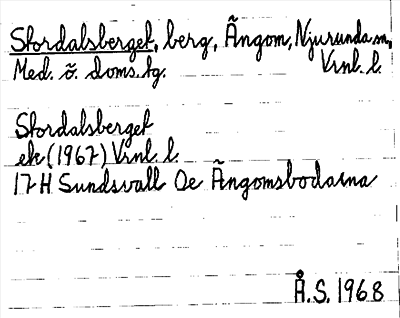 Stordalsberget, berg, Ängom, Njurunda sn,
Med. ö. doms. tg. Vnl. l.
Stordalsberget
ek (1967) Vnl. l.
17H Sundsvall Oe Ängomsbodarna
Å.S. 1968